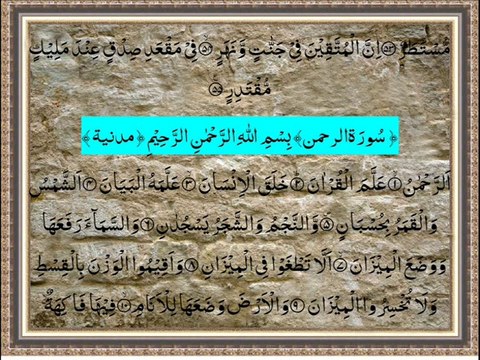 مُّسْتَطَرٌ ﴿٥٣﴾ اِنَّ الْمُتَّقِيْنَ فِيْ جَنّٰتٍ وَّنَهَرٍ ﴿٥٤﴾ فِيْ مَقْعَدِ صِدْقٍ عِنْدَ مَلِيْكٍ
مُّقْتَدِرٍ ﴿٥٥﴾
﴿سُورَة الرحمن﴾ بِسْمِ اللهِ الرَّحْمٰنِ الرَّحِيْمِ ﴿مدنية﴾
اَلرَّحْمٰنُ ﴿١﴾ عَلَّمَ الْقُرْاٰنَ ﴿٢﴾ خَلَقَ الْاِنْسَانَ ﴿٣﴾ عَلَّمَهُ الْبَيَانَ ﴿٤﴾ اَلشَّمْسُ
وَالْقَمَرُ بِحُسْبَانٍ ﴿٥﴾ وَّالنَّجْمُ وَالشَّجَرُ يَسْجُدٰنِ ﴿٦﴾ وَالسَّمَآءَ رَفَعَهَا
وَوَضَعَ الْمِيْزَانَ ﴿٧﴾ اَلَّا تَطْغَوْا فِي الْمِيْزَانِ ﴿٨﴾ وَاَقِيْمُوا الْوَزْنَ بِالْقِسْطِ
وَلَا تُخْسِرُوا الْمِيْزَانَ ﴿٩﴾ وَالْاَرْضَ وَضَعَهَا لِلْاَنَامِ ﴿١٠﴾ فِيْهَا فَاكِهَةٌ